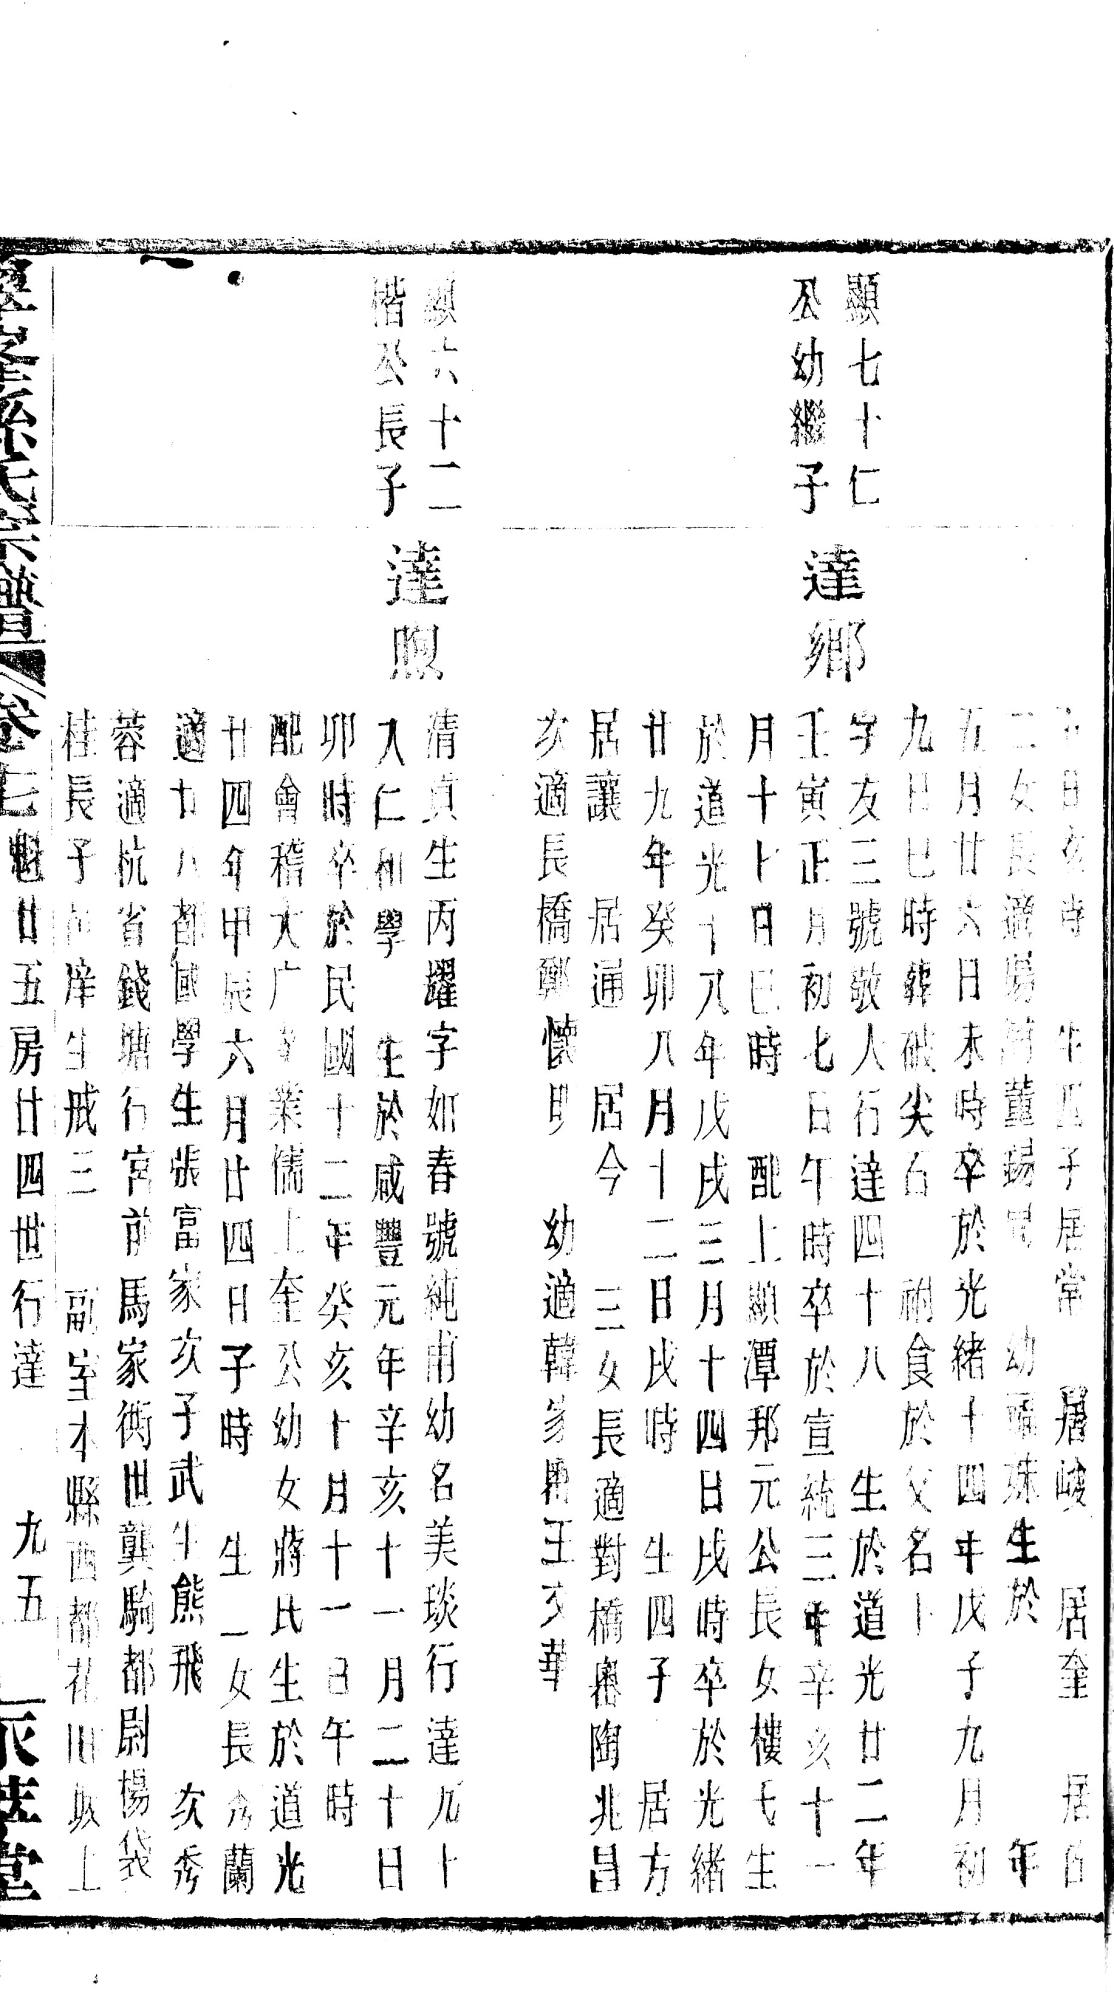 日亥時 生四子居常 居峻 居奎 居
二女長適 董錫 幼 生於 年
五月廿六日未時卒於光緒十四年戊子九月初
九日巳時葬破尖石 祔食於父名下
字友三號敬人行達四十八 生於道光廿二年
壬寅正月初七日午時卒於宣統三年辛亥十一
月十七日巳時 配上顯潭邦元公長女樓氏生
於道光十八年戊戌三月十四日戌時卒於光緒
廿九年癸卯八月十二日戌時 生四子 居方
居讓 居通 居今 三女長適對橋嶴陶兆昌
次適長橋鄭懷明 幼適韓家嶴王文華
顯七十仁
公幼繼子
達鄉
顯六十二
楷公長子
達煦
清貞生丙躍字如春號純甫幼名美琰行達九十
入仁和學 生於咸豐元年辛亥十一月二十日
卯時卒於民國十二年癸亥十月十一日午時
配會稽大广 業儒上奎公幼女蔣氏生於道光
廿四年甲辰六月廿四日子時 生一女長秀蘭
適廿八都國學生張富家次子武生熊飛 次秀
蓉適杭省錢塘行宮前馬家衖世襲騎都尉楊袋
桂長子 庠生戒三 副室本縣西都花田坂上
翠峯孫氏宗譜 卷七 魁廿五房廿四世行達 九五 堂